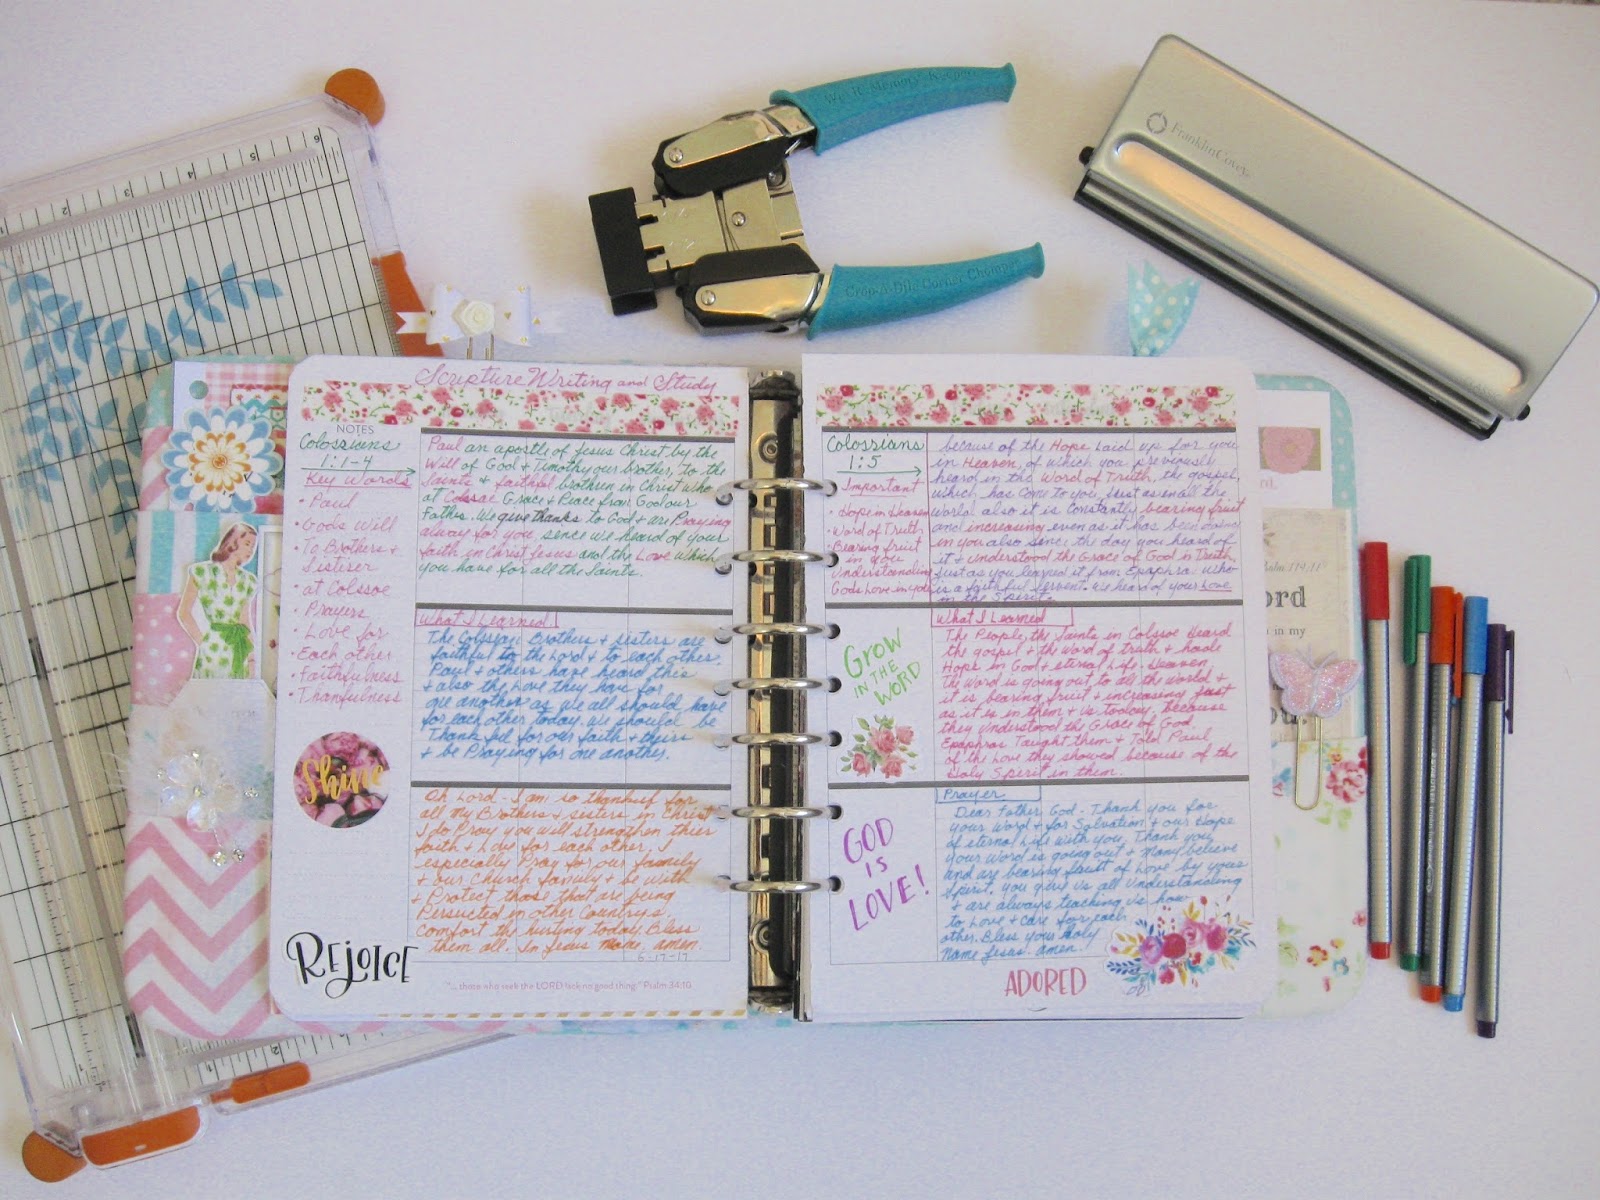 We R Memory Keepers
Crop-A-Dile Corner Chomper
FranklinCovey
Scripture Writing and Study
NOTES
Colossians
1:1-4
Key Words
• Paul
• Gods Will
• To Brothers &
Sisterer
• at Colssoe
• Prayers
• Love for
• Each other
• Faithfulness
• Thankfulness
Shine
REJOICE
Paul an apostle of Jesus Christ by the
Will of God & Timothy our brother, To the
Saints & faithful brothren in Christ who
at Colssae Grace & Peace from God our
Father. We give thanks to God & are Praying
always for you, sence we heard of your
faith in Christ Jesus and the Love which
you have for all the Saints.
What I Learned
The Colssean Brothers & sisters are
faithful to the Lord & to each other.
Paul & others have heard this
& also the Love they have for
one another as we all should have
for each other today. We should be
Thankful for our faith & theirs
& be Praying for one another.
Oh Lord - I am so thankful for
all my Brothers & sisters in Christ
I do Pray you will strengthen thier
faith & Love for each other. I
especially Pray for our family
& our Church family & be with
& Protect those that are being
Persucted in other Countrys.
Comfort the hurting today. Bless
them all. In Jesus Name. amen.
6-17-17
"... those who seek the LORD lack no good thing." Psalm 34:10
Colossians
1:5
Important
• Hope in Heaven
• Word of Truth
• Bearing fruit
in you
Understanding
Gods Love in you
GROW
IN THE
WORD
GOD
IS
LOVE!
because of the Hope Laid up for you
in Heaven, of which you previously
heard in the Word of Truth, the gospel,
which has Come to you, Just as in all the
World also it is Constantly bearing fruit
and increasing even as it has been doing
in you also sence the day you heard of
it & understood the Grace of God in Truth.
Just as you learned it from Epaphras. Who
is a faithful Servent. We heard of your Love
in the Spirit.
What I Learned
The People, the Saints in Colssoe Heard
the gospel & the Word of truth & have
Hope in God & eternal Life - Heaven.
The Word is going out to all the world &
it is bearing fruit & increasing Just
as it is in them & us today. Because
they understood the Grace of God.
Epaphras Taught them & Told Paul
of the Love they showed because of the
Holy Spirit in them.
Prayer
Dear Father God - Thank you for
your Word & for Salvation & our Hope
of eternal Life with you. Thank you
your Word is going out & Many believe
and are bearing fruit of Love by your
Spirit. You give us all Understanding
& are always teaching us how
to Love & care for each
other. Bless your holy
Name Jesus. amen.
ADORED
Psalm 119:11
ord
in my
you.